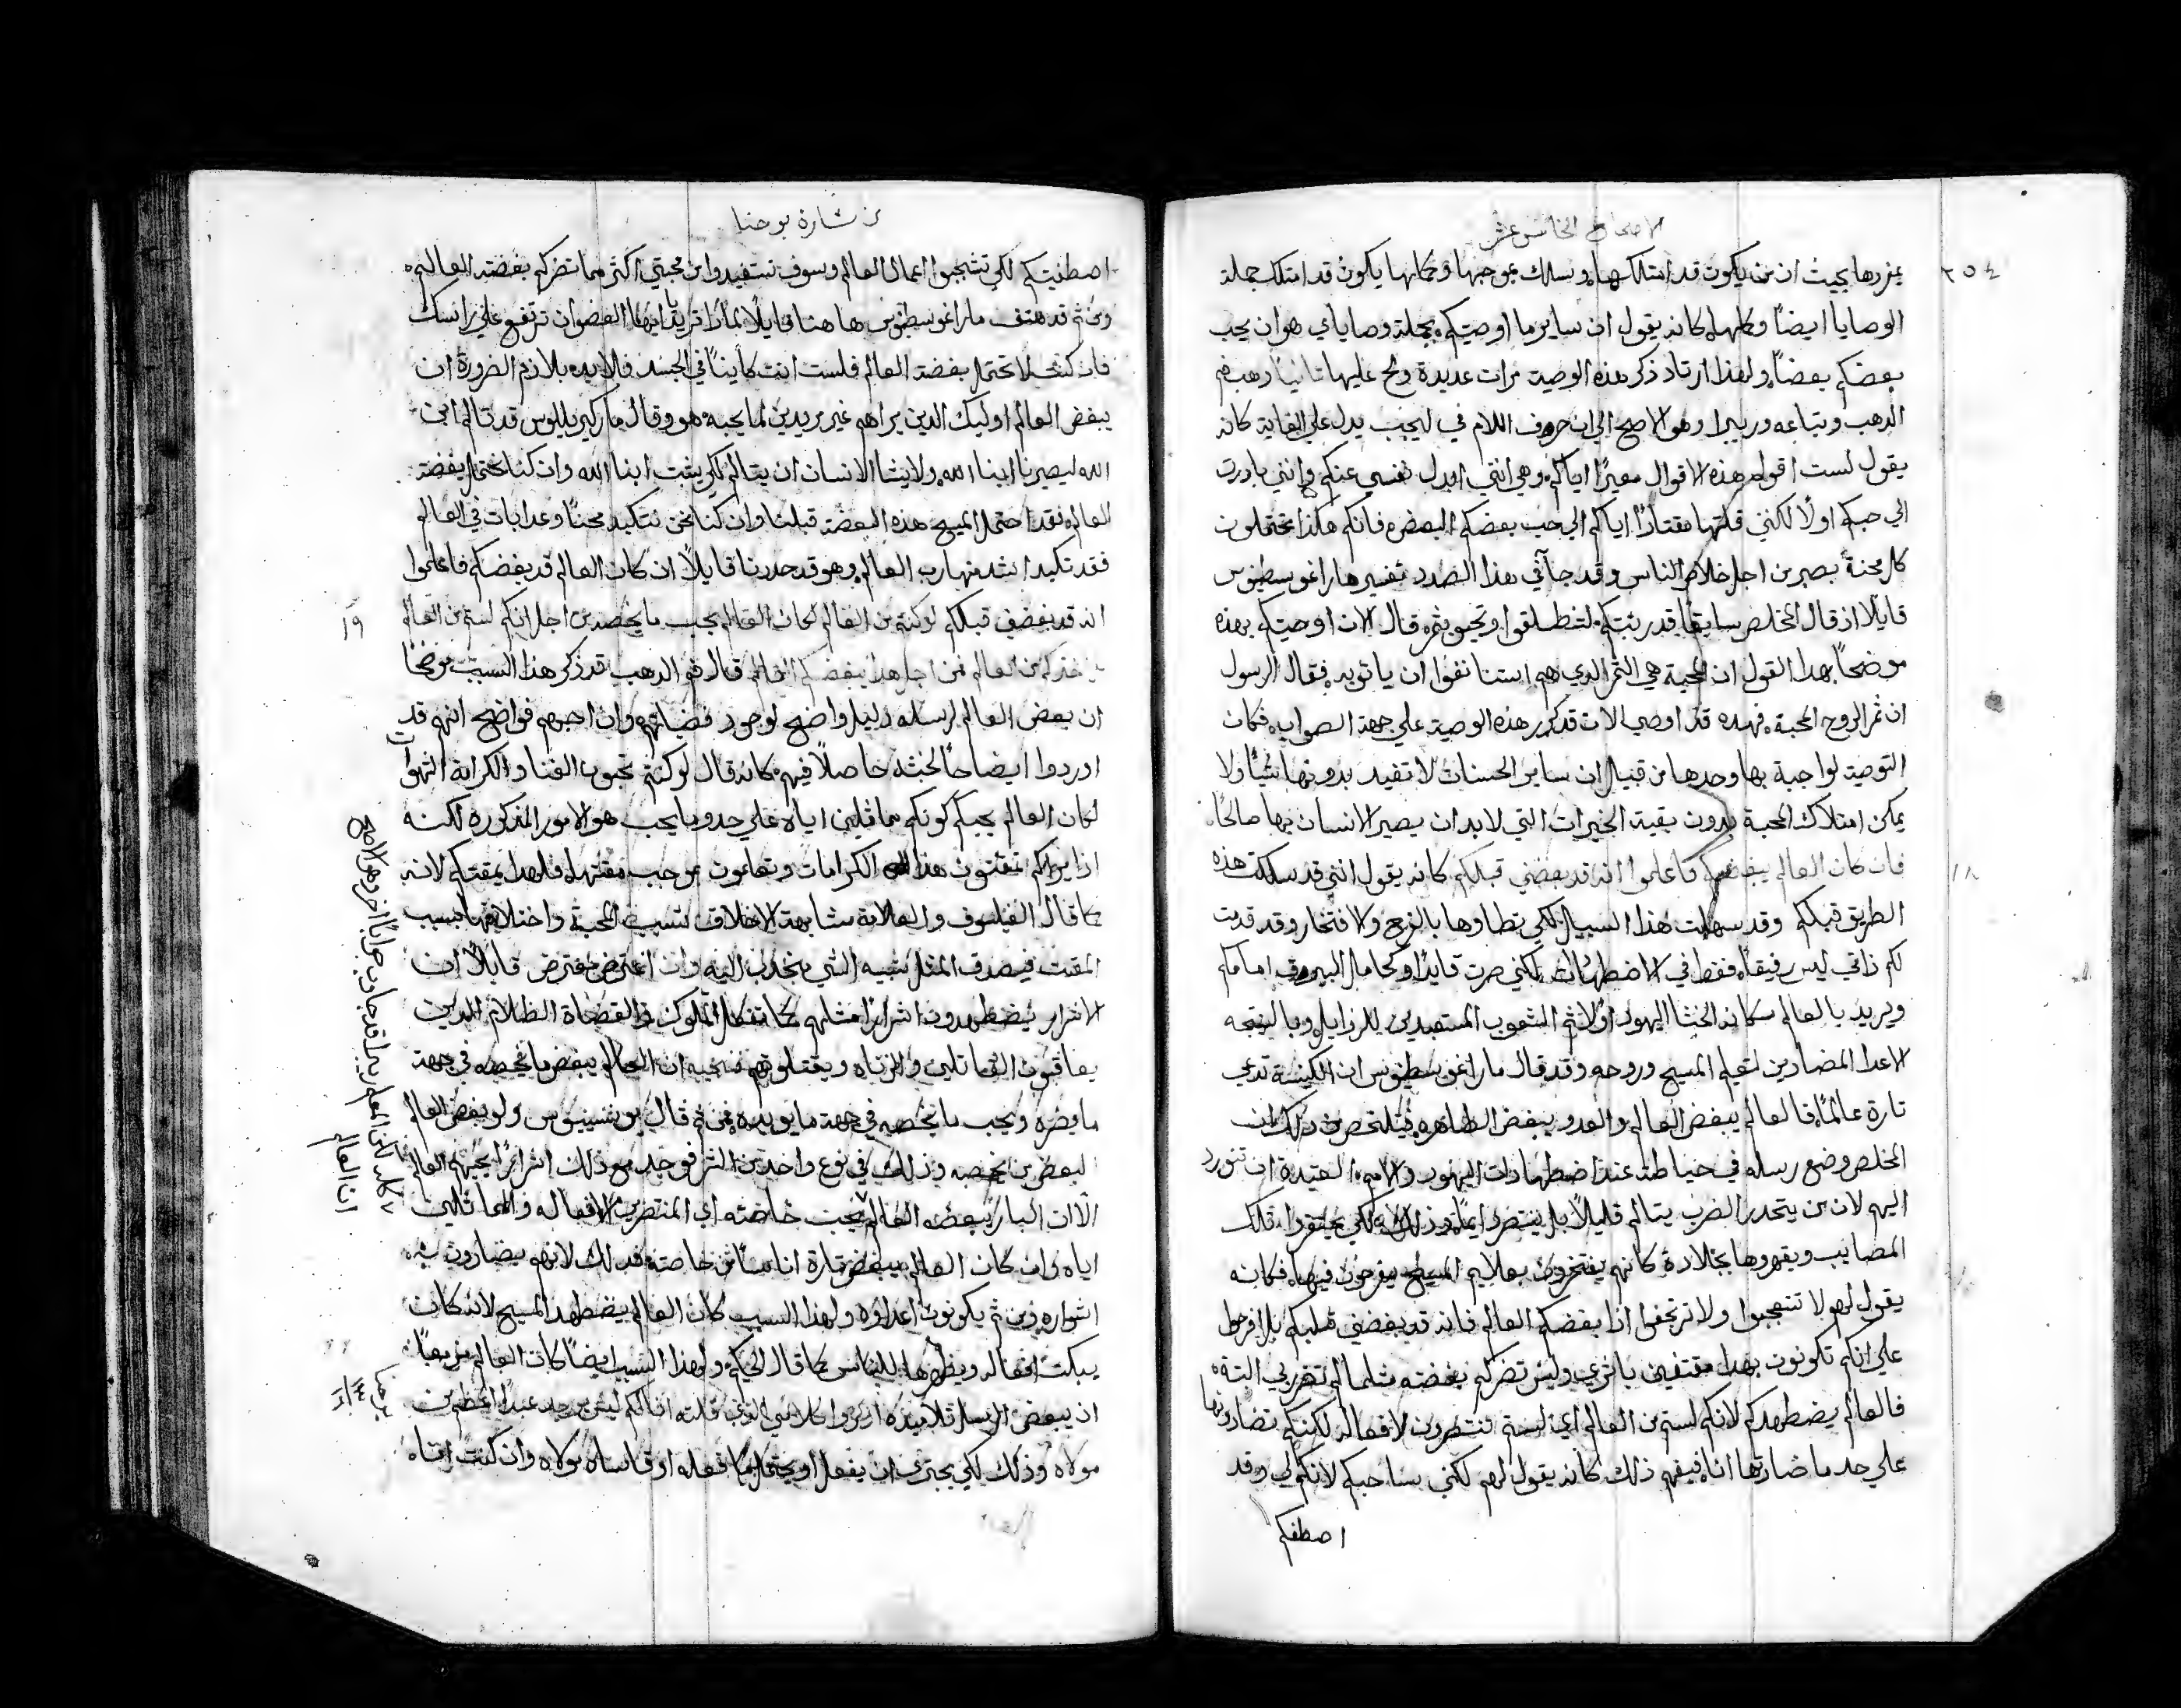 الاصحاح الخامس عشر
٢٥٤
يفردها بحيث ان من يكون قد امتلكها وسلك بموجبها وكانها يكون قد امتلك جملة
الوصايا ايضاً وكلها كانه يقول ان ساير ما اوصيتكم بجملة وصاياي هو ان يحب
بعضكم بعضاً ولهذا ارتاد ذكر هذه الوصية مرات عديدة ولج عليها ثانياً ذهب فم
الدهب وتباعه وريبيرا وهو الاصح الي ان حرف اللام في ليحب يدل علي الغاية كانه
يقول لست اقول هذه الاقوال معيراً اياكم وهي انني ابدل نفسي عنكم وانني بادرت
الي حبكم اولاً لكنني قلتها مقتاداً اياكم الي حب بعضكم البعض فانكم هكذا تحتملون
كل محنة بصبر من اجل خلاص الناس وقد جا في هذا الصدد تفسير مار اغوسطينوس
قايلاً اذ قال المخلص سابقاً قد ربتكم لتنطلقوا وتجيبو بثمره قال الان اوصيتكم بهذه
موضحاً بهذا القول ان المحبة هي الثمر الذي هم استنا نفوا ان ياتو به فقال الرسول
ان ثمر الروح المحبة فهذه قد اوصي الان قد كرر هذه الوصية علي جهة الصواب فكان
التوصية لواجبة بها وحدها من قبيل ان ساير الحسنات لا تفيد بدونها شياً ولا
يمكن امتلاك المحبة بدون بقية الخيرات التي لابد ان يصير الانسان بها صالحاً
١٨ فان كان العالم يبغضكم فاعلموا انه قد بغضني قبلكم كانه يقول انني قد سلكت هذه
الطريق قبلكم وقد سهلت هذا السبيل لكي تطاوها بالفرح والافتخار وقد قدمت
لكم ذاتي ليس رفيقاً فقط في الاضطهادات لكني صرت قايداً وكحامل البيرق امامكم
ويريد بالعالم سكانه الخبثا اليهود اولاً ثم الشعوب المستعبدين للرذايل وبالنتيجه
الاعدا المضادين لتعليم المسيح وروحه وقد قال مار اغوسطينوس ان الكنيسة تدعي
تارة عالماً فالعالم يبغض العالم والعدو يبغض الطاهره فيتلخص من ذلك ان
المخلص وضع رسله في حياطته عند اضطهادات اليهود والامم العتيدة ان تورد
اليهم لان من يتحدر الضرب يتالم قليلاً بل ينتصر ايضاً وذلك لكي يحتقروا تلك
المصايب ويقهروها بجلادة كانهم يفتخرون بعلايم المسيح يفرحون فيها فكانه
يقول لهم لا تتعجبوا ولا ترتجفوا اذا بغضكم العالم فانه قد بغضني قبلكم بل افرحوا
علي انكم تكونون بهذا مقتفين باثري وليس تضركم بغضته مثلما لم تضر بي البتة
فالعالم يضطهدكم لانكم لستم من العالم اي لستم تنتصرون لافعاله لكنكم تضادونها
علي حد ما ضادتها انا فيفهم ذلك كانه يقول لهم لكني ساحبكم لانكم لي وقد
اصطفكم
من بشارة يوحنا
اصطفيتكم لكي تشجبوا اعمال العالم وسوف تستفيدوا من محبتي اكثر مما تضركم بغضته العالم
ومن ثم قد هتف مار اغوسطينوس هاهنا قايلاً لماذا تريد ايها العضو ان ترتفع علي راسك
فان كنت لا تحتمل بغضة العالم فلست انت كايناً في الجسد فلابد بلازم الضرورة ان
يبغض العالم اوليك الدين يراهم غير مريدين لما يحبه هو وقال مار كيريللوس قد تالم ابن
الله ليصيرنا ابنا الله ولا يشا الانسان ان يتالم لكي يثبت ابنا الله وان كنا نحتمل بغضة
العالم فقد احتمل المسيح هذه البغضة قبلنا وان كنا نحن نتكبد محناً وعدابات في العالم
فقد تكبد اشد منها رب العالم وهو قد حدرنا قايلاً ان كان العالم قد يبغضكم فاعلموا
١٩ انه قد بغضني قبلكم لو كنتم من العالم لكان العالم يحب ما يخصه من اجل انكم لستم من العالم
بل اخترتكم من العالم فمن اجل هذا يبغضكم العالم قال فم الدهب قد ذكر هذا السبب موضحاً
ان بغض العالم لرسله دليل واضح لوجود فضايلهم وان احبهم فواضح انهم قد
اوردوا ايضاحاً لخبثه حاصلاً فيهم كانه قال لو كنتم تحبون الغنا والكرامة الشهوات
لكان العالم يحبكم كونكم مماثلين اياه علي حد وما يحب هو الامور المذكوره لكنه
اذا يراكم تمقتون هذه الكرامات وتعلمون بموجب مقتها فلهذا يمقتكم لانه
كما قال الفيلسوف والعلامة مشابهة الاخلاق تسبب المحبة واختلافها يسبب
المقت فيصدق المثل شبيه الشي منجذب اليه وان اعترض معترض قايلاً ان
الاشرار يضطهدون اشراراً مثلهم كما تفعل الملوك والقضاة الظلام الدين
يعاقبون القاتلين والزناه ويقتلونهم فنجيبه ان العالم يبغض ما يخصه في جهة
ما يضره ويحب ما يخصه في جهة ما يويده فمن ثم قال يوبنسينيوس ولو بغض العالم
البعض من يخصه وذلك في نوع واحد من الشر فوجد مع ذلك اشراراً يحبهم العالم
الا ان البار يبغضه العالم يحب خاصته اي المنتصرين لافعاله والمماثلين
اياه وان كان العالم يبغض تارة اناساً من خاصته فذلك لانهم يضادون
اشراره ومن ثم يكونون اعداوه ولهذا السبب كان العالم يضطهد المسيح لانه كان
يبكت افعاله ويظهرها للناس كما قال الحكيم ولهذا السبب ايضاً كان العالم مزمعاً
ان يبغض الرسل تلاميذه اذكروا كلامي الذي قلته انا لكم ليس يوجد عبداً اعظم من
مولاه وذلك لكي يجتري ان يفعل او يحتمل ما فعله او قاساه مولاه وان كنت انا
جواباً اخر وهو الاصح
ان العالم
يوحنا
١٣
١٦